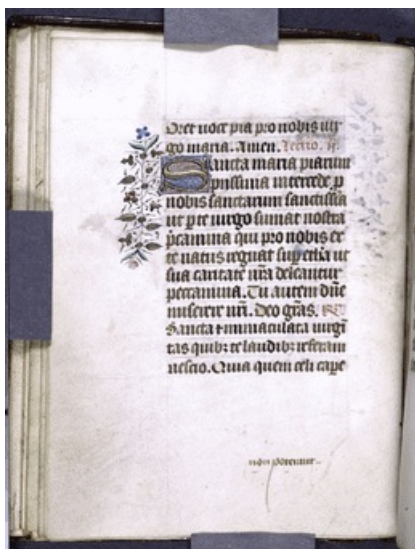 Oret voce pia pro nobis vir
go maria. Amen. Lectio. ii.
Sancta maria piarum
piissima intercede p
nobis sanctarum sanctissia
ut p te virgo sumat nostra
pcamina qui pro nobis ex
te natus regnat sup celia ut
sua caritate nra deleantur
peccamina. Tu autem dne
miserere nri. Deo gras.
Sancta et inmaculata virgi
tas quibz te laudibz referam
nescio. Quia quem celi cape
non poterant